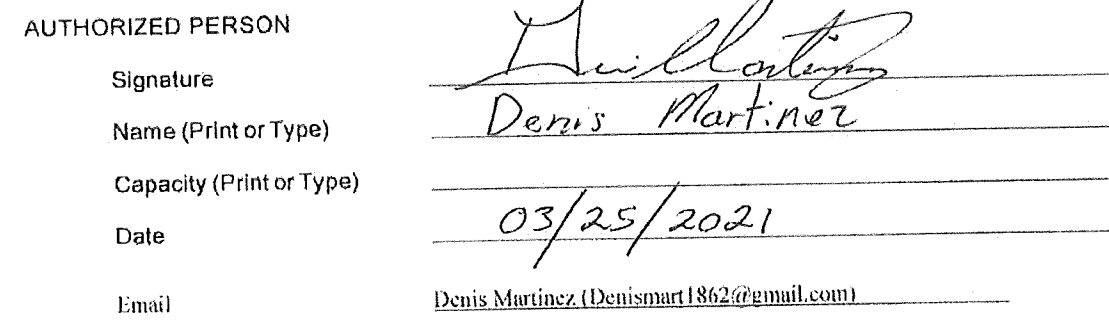 AUTHORIZED PERSON
Signature
Name (Print or Type) Denis Martinez
Capacity (Print or Type)
Date 03/25/2021
Email Denis Martinez (Denismart1862@gmail.com)